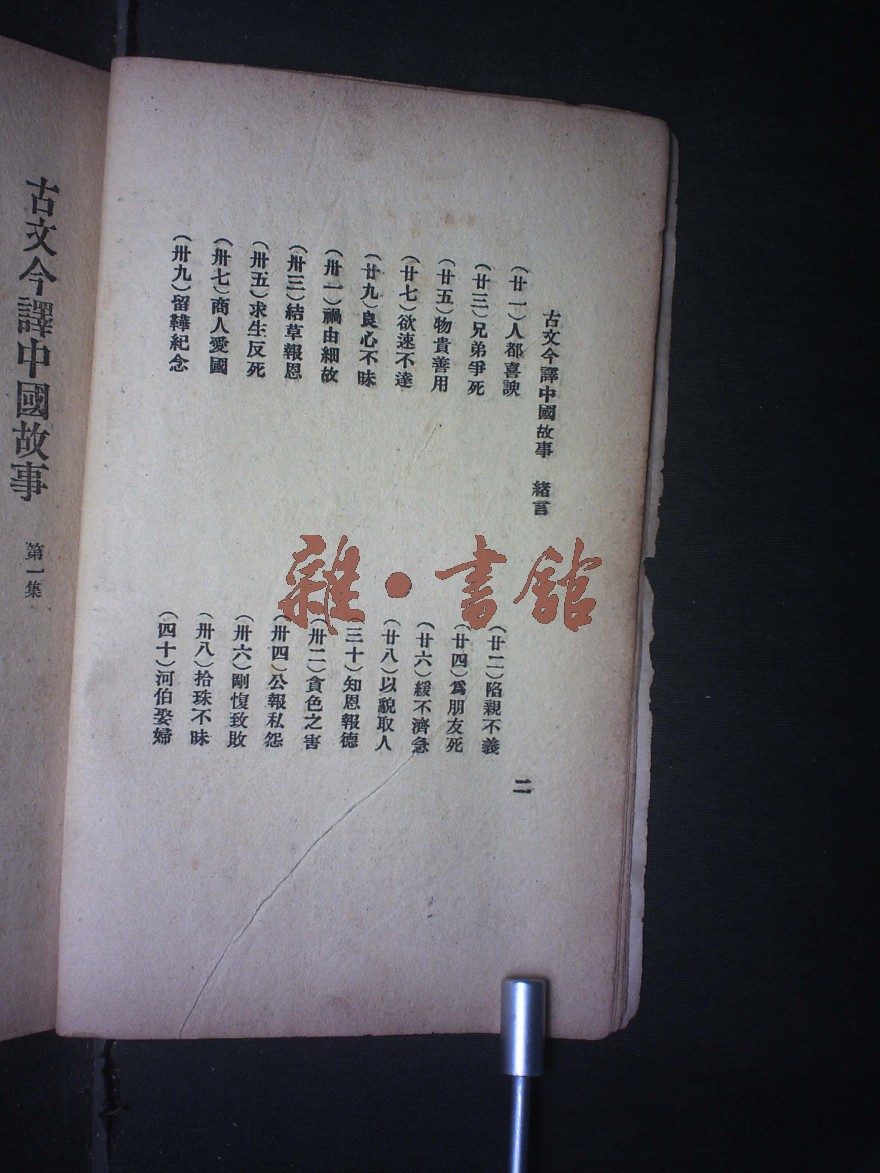 古文今譯中國故事　緒言
二
(廿一)人都喜諛
(廿二)陷親不義
(廿三)兄弟爭死
(廿四)爲朋友死
(廿五)物貴善用
(廿六)緩不濟急
(廿七)欲速不達
(廿八)以貌取人
(廿九)良心不昧
(三十)知恩報德
(卅一)禍由細故
(卅二)貪色之害
(卅三)結草報恩
(卅四)公報私怨
(卅五)求生反死
(卅六)剛愎致敗
(卅七)商人愛國
(卅八)拾珠不昧
(卅九)留鞾紀念
(四十)河伯娶婦
古文今譯中國故事　第一集
雜·書館